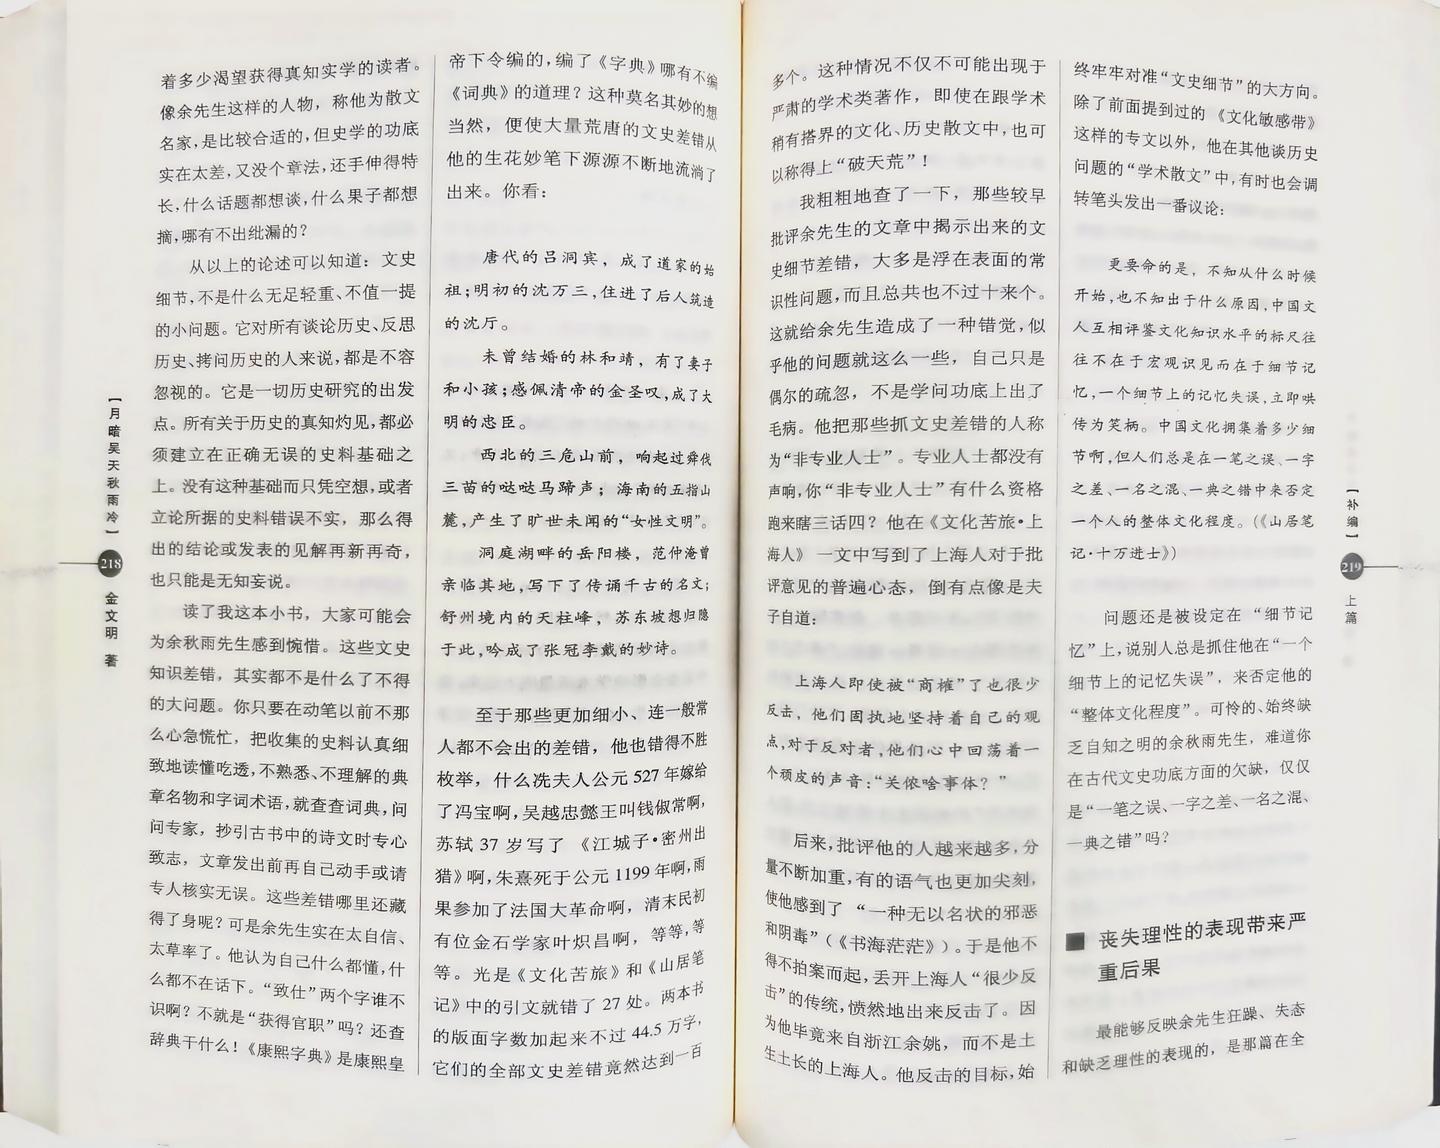 着多少渴望获得真知实学的读者。
像余先生这样的人物，称他为散文
名家，是比较合适的，但史学的功底
实在太差，又没个章法，还手伸得特
长，什么话题都想谈，什么果子都想
摘，哪有不出纰漏的？
从以上的论述可以知道：文史
细节，不是什么无足轻重、不值一提
的小问题。它对所有谈论历史、反思
历史、拷问历史的人来说，都是不容
忽视的。它是一切历史研究的出发
点。所有关于历史的真知灼见，都必
须建立在正确无误的史料基础之
上。没有这种基础而只凭空想，或者
立论所据的史料错误不实，那么得
出的结论或发表的见解再新再奇，
也只能是无知妄说。
读了我这本小书，大家可能会
为余秋雨先生感到惋惜。这些文史
知识差错，其实都不是什么了不得
的大问题。你只要在动笔以前不那
么心急慌忙，把收集的史料认真细
致地读懂吃透，不熟悉、不理解的典
章名物和字词术语，就查查词典，问
问专家，抄引古书中的诗文时专心
致志，文章发出前再自己动手或请
专人核实无误。这些差错哪里还藏
得了身呢？可是余先生实在太自信、
太草率了。他认为自己什么都懂，什
么都不在话下。“致仕”两个字谁不
识啊？不就是“获得官职”吗？还查
辞典干什么！《康熙字典》是康熙皇
帝下令编的，编了《字典》哪有不编
《词典》的道理？这种莫名其妙的想
当然，便使大量荒唐的文史差错从
他的生花妙笔下源源不断地流淌了
出来。你看：
唐代的吕洞宾，成了道家的始
祖；明初的沈万三，住进了后人筑造
的沈厅。
未曾结婚的林和靖，有了妻子
和小孩；感佩清帝的金圣叹，成了大
明的忠臣。
西北的三危山前，响起过舜伐
三苗的哒哒马蹄声；海南的五指山
麓，产生了旷世未闻的“女性文明”。
洞庭湖畔的岳阳楼，范仲淹曾
亲临其地，写下了传诵千古的名文；
舒州境内的天柱峰，苏东坡想归隐
于此，吟成了张冠李戴的妙诗。
至于那些更加细小、连一般常
人都不会出的差错，他也错得不胜
枚举，什么冼夫人公元527年嫁给
了冯宝啊，吴越忠懿王叫钱俶常啊，
苏轼37岁写了《江城子•密州出
猎》啊，朱熹死于公元1199年啊，雨
果参加了法国大革命啊，清末民初
有位金石学家叶炽昌啊，等等，等
等。光是《文化苦旅》和《山居笔
记》中的引文就错了27处。两本书
的版面字数加起来不过44.5万字，
它们的全部文史差错竟然达到一百
【月暗吴天秋雨冷】
218
金文明 著
多个。这种情况不仅不可能出现于
严肃的学术类著作，即使在跟学术
稍有搭界的文化、历史散文中，也可
以称得上“破天荒”！
我粗粗地查了一下，那些较早
批评余先生的文章中揭示出来的文
史细节差错，大多是浮在表面的常
识性问题，而且总共也不过十来个。
这就给余先生造成了一种错觉，似
乎他的问题就这么一些，自己只是
偶尔的疏忽，不是学问功底上出了
毛病。他把那些抓文史差错的人称
为“非专业人士”。专业人士都没有
声响，你“非专业人士”有什么资格
跑来瞎三话四？他在《文化苦旅•上
海人》一文中写到了上海人对于批
评意见的普遍心态，倒有点像是夫
子自道：
上海人即使被“商榷”了也很少
反击，他们固执地坚持着自己的观
点，对于反对者，他们心中回荡着一
个顽皮的声音：“关侬啥事体？”
后来，批评他的人越来越多，分
量不断加重，有的语气也更加尖刻，
使他感到了“一种无以名状的邪恶
和阴毒”（《书海茫茫》）。于是他不
得不拍案而起，丢开上海人“很少反
击”的传统，愤然地出来反击了。因
为他毕竟来自浙江余姚，而不是土
生土长的上海人。他反击的目标，始
终牢牢对准“文史细节”的大方向。
除了前面提到过的《文化敏感带》
这样的专文以外，他在其他谈历史
问题的“学术散文”中，有时也会调
转笔头发出一番议论：
更要命的是，不知从什么时候
开始，也不知出于什么原因，中国文
人互相评鉴文化知识水平的标尺往
往不在于宏观识见而在于细节记
忆，一个细节上的记忆失误，立即哄
传为笑柄。中国文化拥集着多少细
节啊，但人们总是在一笔之误、一字
之差、一名之混、一典之错中来否定
一个人的整体文化程度。（《山居笔
记•十万进士》）
问题还是被设定在“细节记
忆”上，说别人总是抓住他在“一个
细节上的记忆失误”，来否定他的
“整体文化程度”。可怜的、始终缺
乏自知之明的余秋雨先生，难道你
在古代文史功底方面的欠缺，仅仅
是“一笔之误、一字之差、一名之混、
一典之错”吗？
■ 丧失理性的表现带来严
重后果
最能够反映余先生狂躁、失态
和缺乏理性的表现的，是那篇在全
【补编】
219
上篇